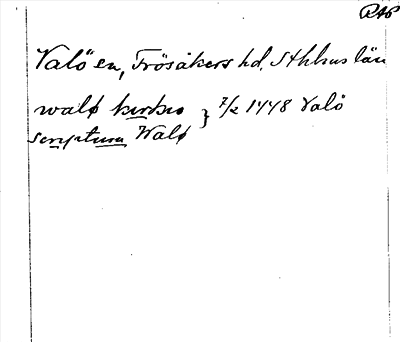 RAP
Valö en, Frösåkers hd. Sthlms län
walø kirkio } 7/2 1448 Valö
scriptum Walø